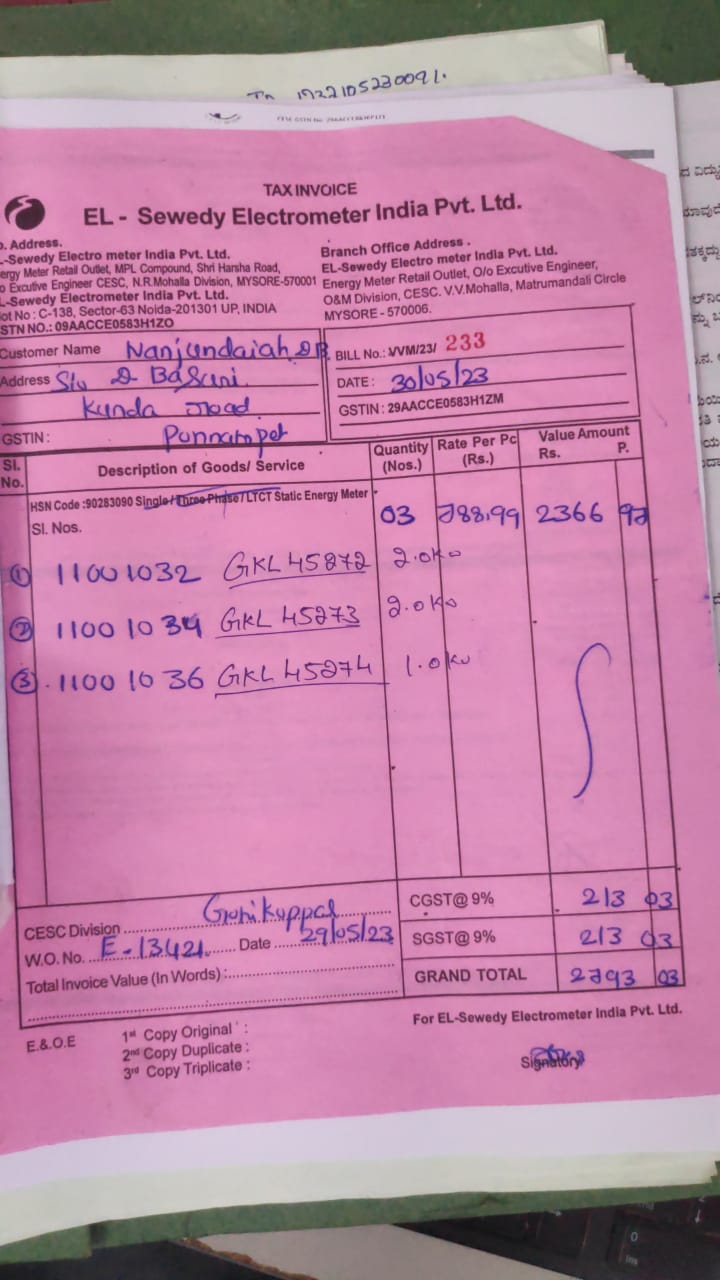 1722105230091.
TAX INVOICE
EL - Sewedy Electrometer India Pvt. Ltd.
. Address.
-Sewedy Electro meter India Pvt. Ltd.
ergy Meter Retail Outlet, MPL Compound, Shri Harsha Road,
o Excutive Engineer CESC, N.R.Mohalla Division, MYSORE-570001
L-Sewedy Electrometer India Pvt. Ltd.
ot No : C-138, Sector-63 Noida-201301 UP, INDIA
STN NO.: 09AACCE0583H1ZO
Branch Office Address .
EL-Sewedy Electro meter India Pvt. Ltd.
Energy Meter Retail Outlet, O/o Excutive Engineer,
O&M Division, CESC. V.V.Mohalla, Matrumandali Circle
MYSORE - 570006.
Customer Name Nanjundaiah D B.
Address S/o D Basuni
Kunda road
GSTIN : Ponnampet
BILL No.: VVM/23/ 233
DATE : 30/05/23
GSTIN : 29AACCE0583H1ZM
Sl. No. Description of Goods/ Service Quantity (Nos.) Rate Per Pc (Rs.) Value Amount Rs. P.
HSN Code :90283090 Single / Three Phase / LTCT Static Energy Meter
Sl. Nos. 03 788.99 2366 97
① 11001032 GKL 45872 2.0KW
② 11001034 GKL 45873 2.0KW
③ 11001036 GKL 45874 1.0KW
CESC Division Gonikoppal
W.O. No. E-13421 Date 29/05/23
Total Invoice Value (In Words) :
CGST@ 9% 213 03
SGST@ 9% 213 03
GRAND TOTAL 2793 03
E.&.O.E
1st Copy Original :
2nd Copy Duplicate :
3rd Copy Triplicate :
For EL-Sewedy Electrometer India Pvt. Ltd.
Signatory